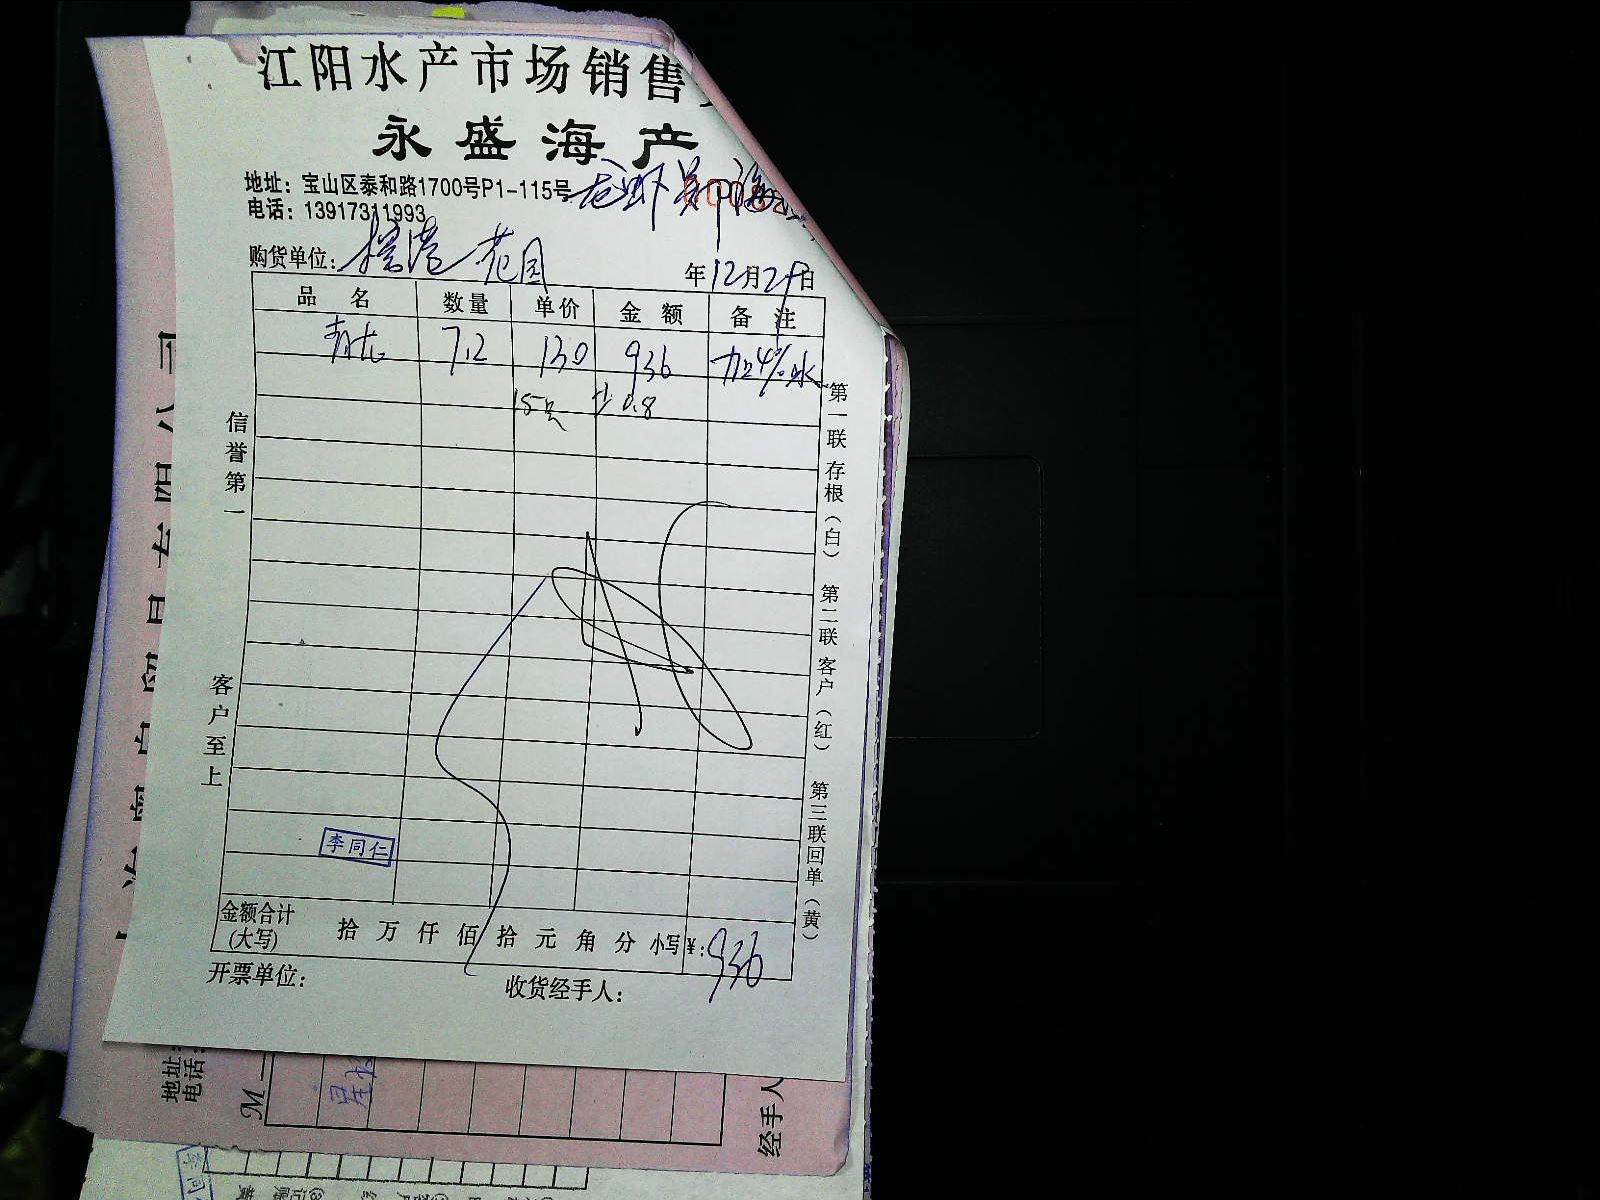 江阳水产市场销售
永盛海产
地址：宝山区泰和路1700号P1-115号
电话：13917311993
购货单位： 花园
年12月29日
品名 数量 单价 金额 备注
青龙 7.2 130 936 加4%水
15只 0.8
信誉第一
客户至上
第一联 存根（白） 第二联 客户（红） 第三联 回单（黄）
李同仁
金额合计(大写) 拾 万 仟 佰 拾 元 角 分 小写¥：936
开票单位： 收货经手人：
地址：
电话：
经手人